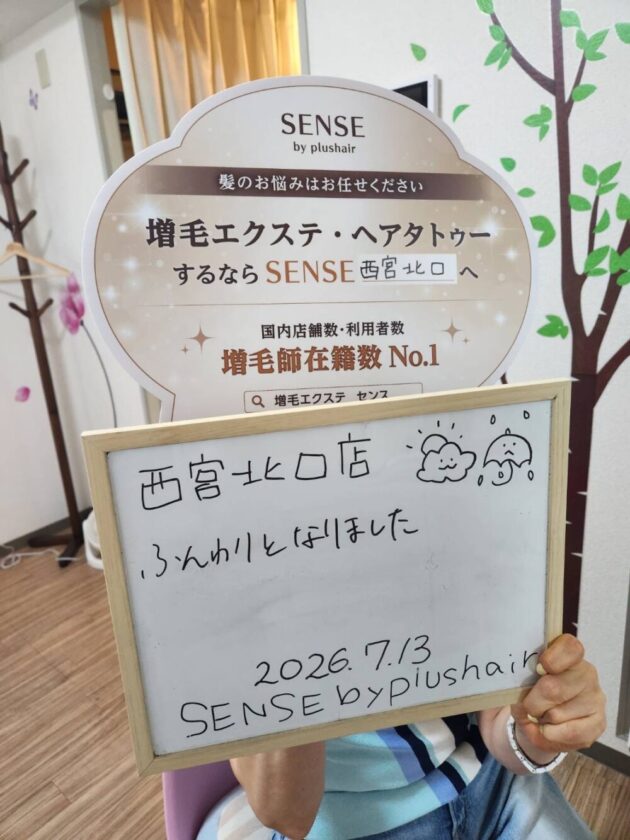 SENSE
by plushair
髪のお悩みはお任せください
増毛エクステ・ヘアタトゥー
するなら SENSE 西宮北口 へ
国内店舗数・利用者数
増毛師在籍数 No.1
増毛エクステ センス
西宮北口店
ふんわりとなりました
2026.7.13
SENSE by plushair